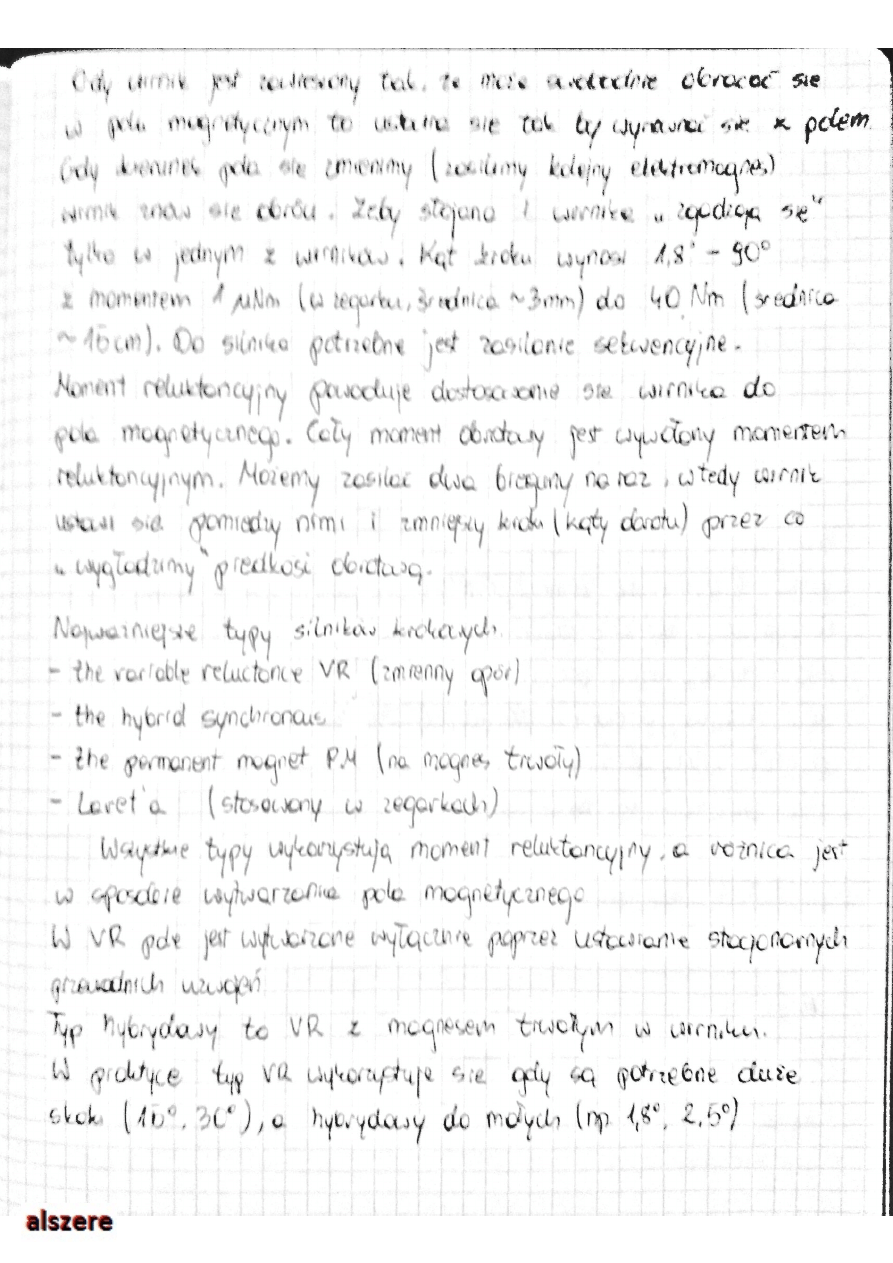 Gdy wirnik jest zawieszony tak, że może swobodnie obracać się
w polu magnetycznym to ustawia się tak by wyrównać się z polem
Gdy kierunek pola się zmienimy (zasilimy kolejny elektromagnes)
wirnik znów się obróci. Zęby stojana i wirnika „zgadzają się"
tylko w jednym z wirników. Kąt kroku wynosi 1,8° - 90°
z momentem 1 µNm (w zegarku, średnica ~3mm) do 40 Nm (średnica
~15cm). Do silnika potrzebne jest zasilanie sekwencyjne.
Moment reluktancyjny powoduje dostosowanie się wirnika do
pola magnetycznego. Cały moment obrotowy jest wywołany momentem
reluktancyjnym. Możemy zasilać dwa bieguny na raz, wtedy wirnik
ustawi się pomiędzy nimi i zmniejszy kroki (kąty obrotu) przez co
„wygładzimy" prędkość obrotową.
Najważniejsze typy silników krokowych
- the variable reluctance VR (zmienny opór)
- the hybrid synchronous
- the permanent magnet P.M (na magnes trwały)
- Lavet'a (stosowany w zegarkach)
Wszystkie typy wykorzystują moment reluktancyjny, a różnica jest
w sposobie wytwarzania pola magnetycznego
W VR pole jest wytwarzane wyłącznie poprzez ustawianie stacjonarnych
przewodnich uzwojeń
Typ hybrydowy to VR z magnesem trwałym w wirniku.
W praktyce typ VR wykorzystuje się gdy są potrzebne duże
skoki (15°, 30°), a hybrydowy do małych (np 1,8°, 2,5°)
alszere